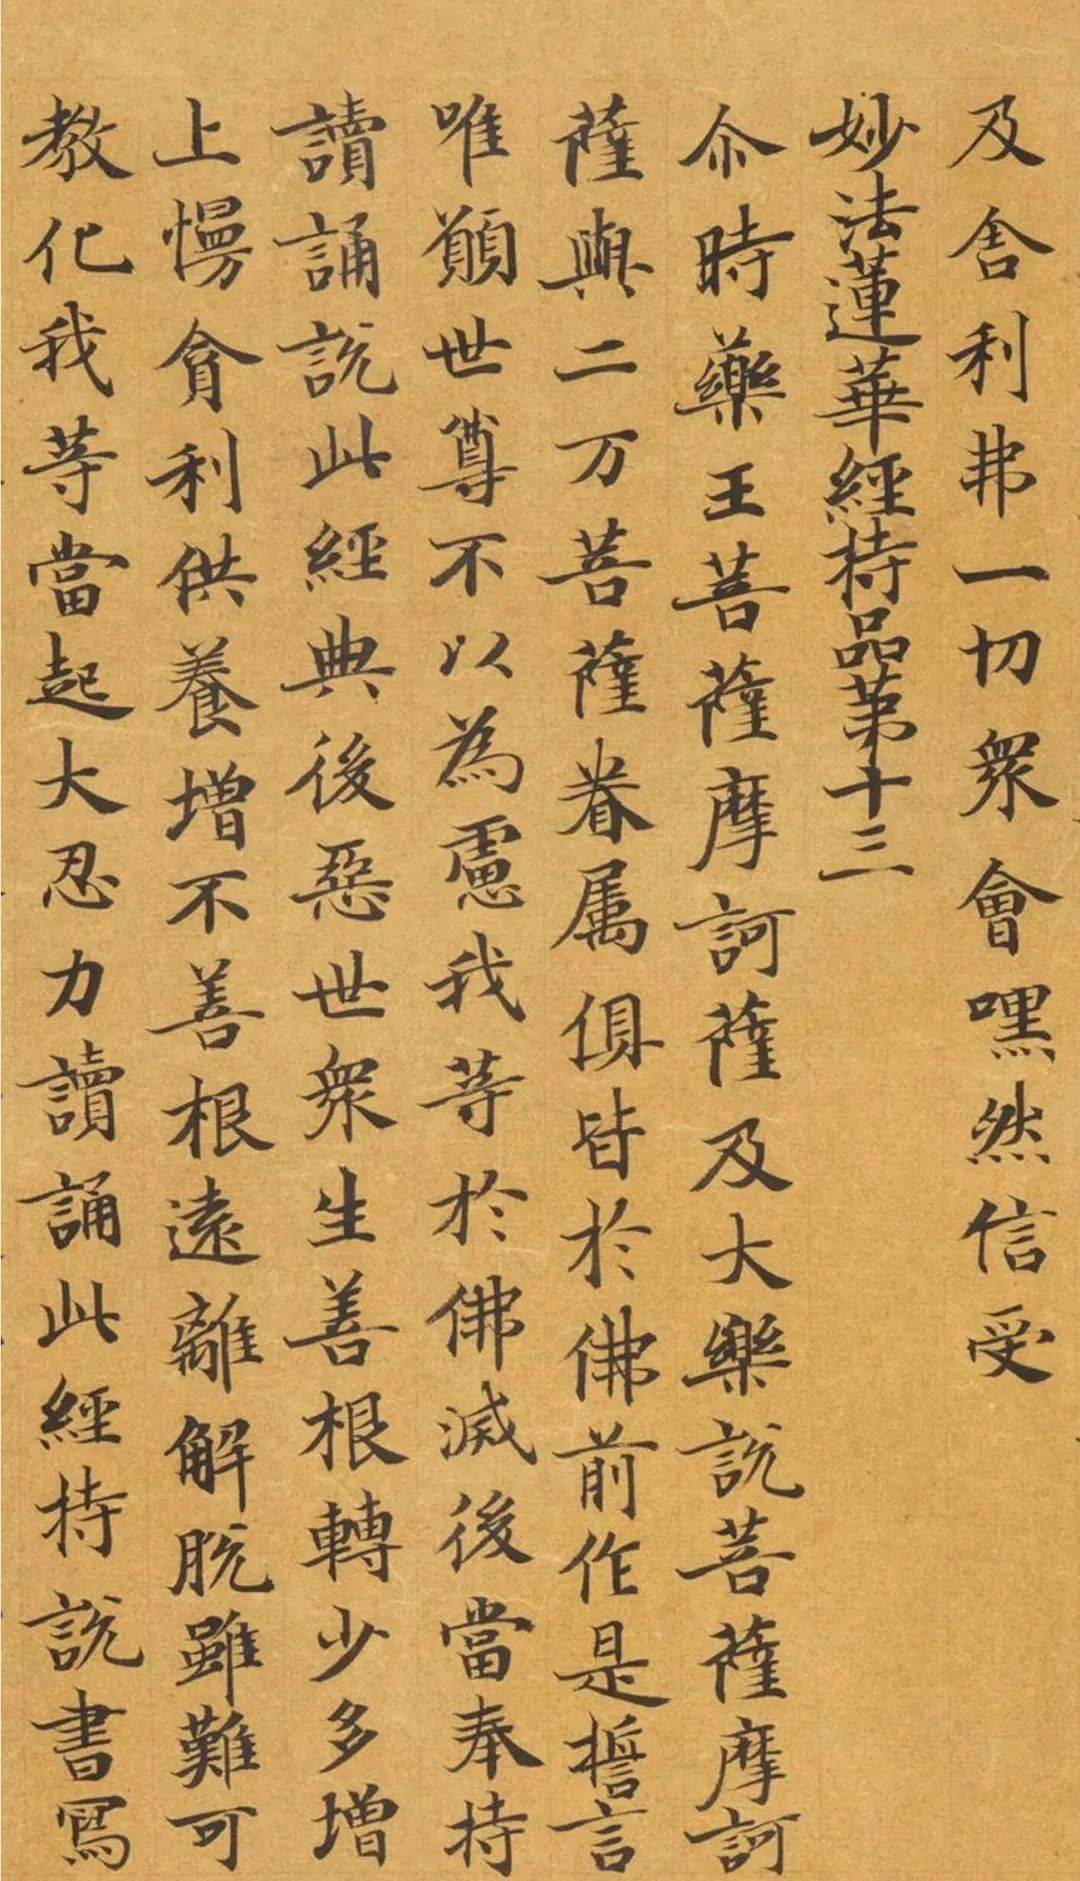 及舍利弗一切衆會嘿然信受
妙法蓮華經持品第十三
尒時藥王菩薩摩訶薩及大樂說菩薩摩訶
薩與二万菩薩眷属俱皆於佛前作是誓言
唯願世尊不以為慮我等於佛滅後當奉持
讀誦說此經典後惡世衆生善根轉少多增
上慢貪利供養增不善根遠離解脫雖難可
教化我等當起大忍力讀誦此經持說書寫